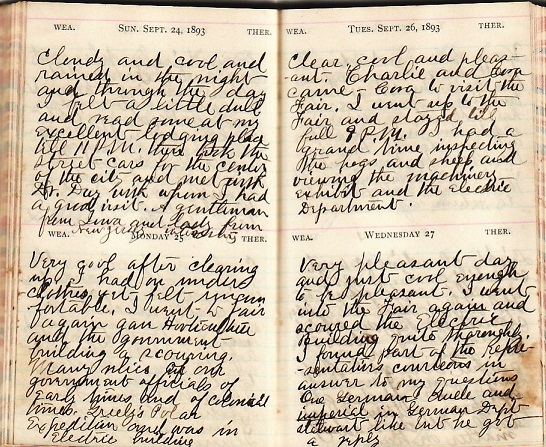 WEA. SUN. SEPT. 24, 1893 THER.
Cloudy and cool and
rained in the night
and through the day
I felt a little dull
and read some at my
excellent lodging place
till 11 P.M. then took the
street cars for the center
of the city and met with
Dr. Day with whom I had
a good visit. A gentleman
from Iowa and lady from
New Jersey
WEA. MONDAY 25 THER.
Very cool after clearing
up. I had on
clothes yet felt uncom
fortable. I went to Fair
again saw Horticulture
and the government
building a scouring.
Many relics of our
government officials of
Early times and of colonial
times. Greely's Polar
Expedition and was in
Electric building
WEA. TUES. SEPT. 26, 1893 THER.
Clear, cool and pleas-
ant. Charlie and Cora
came - Cora to visit the
Fair. I went up to the
Fair and stayed till
full 9 P.M. I had a
grand time inspecting
the hogs and sheep and
viewing the machinery
exhibit and the Electric
Department.
WEA. WEDNESDAY 27 THER.
Very pleasant day
and just cool enough
to be pleasant. I went
into the Fair again and
scoured the Electric
Building quite thoroughly.
I found part of the repre-
sentatives courteous in
answer to my questions
One German, rude and
imperial in German Dept
like but he got
a reply